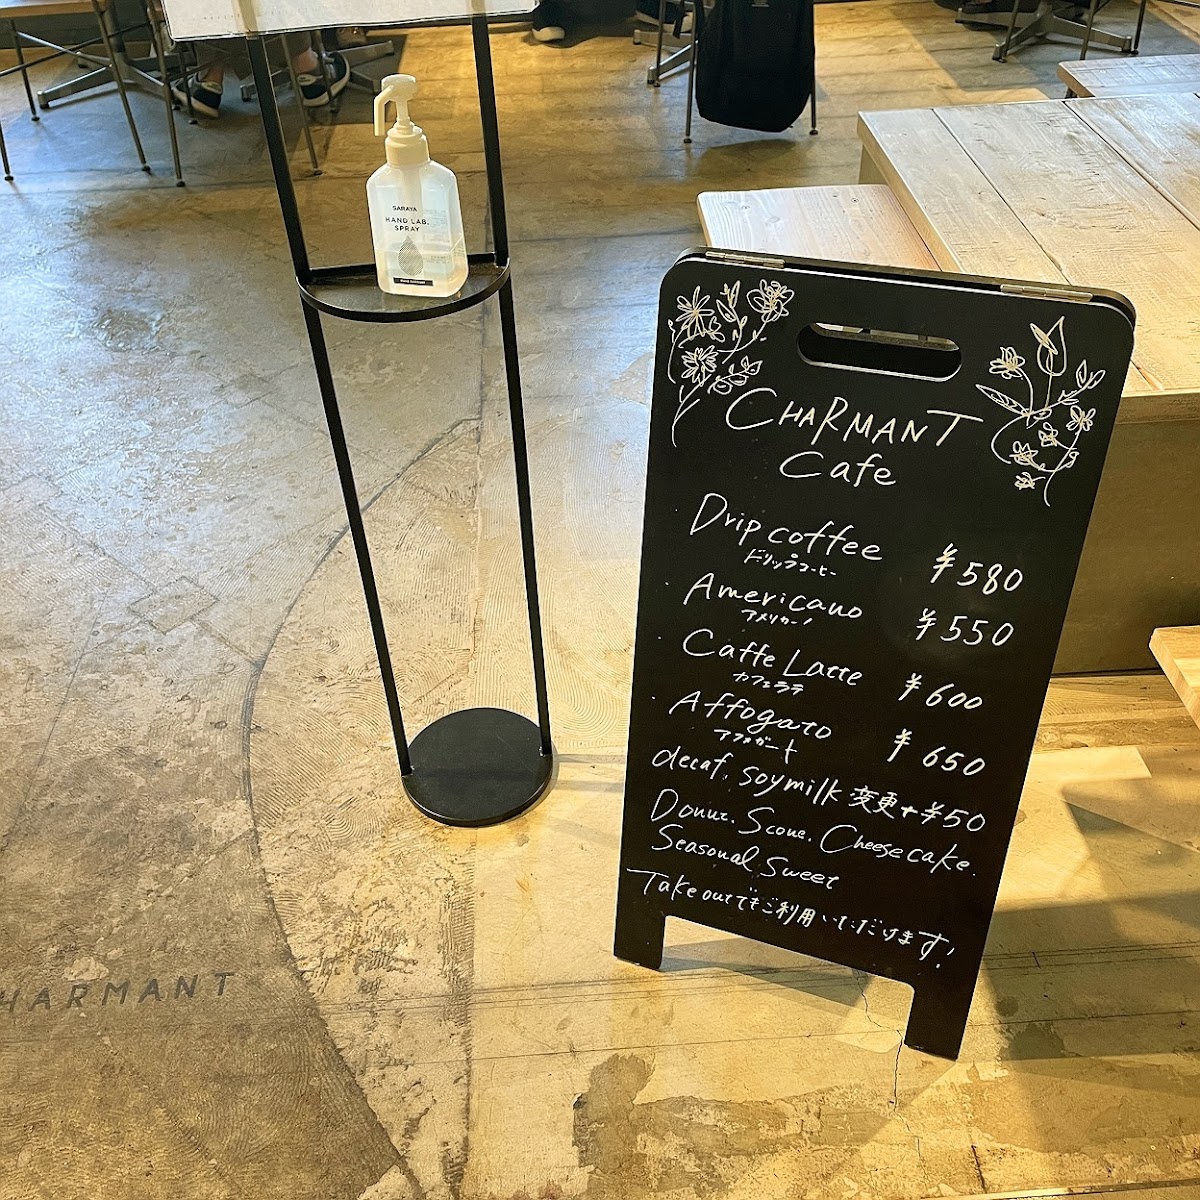 SARAYA
HAND LAB.
SPRAY
CHARMANT
Cafe
Drip coffee ¥580
ドリップコーヒー
Americano ¥550
アメリカーノ
Caffe Latte ¥600
カフェラテ
Affogato ¥650
アフォガート
decaf. soymilk 変更+¥50
Donut. Scone. Cheese cake.
Seasonal Sweet
Take outでもご利用いただけます!
HARMANT